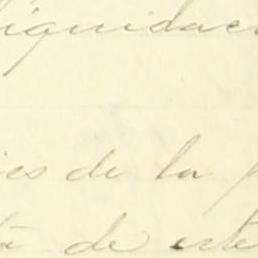 liquidac
es de la p
ta de este